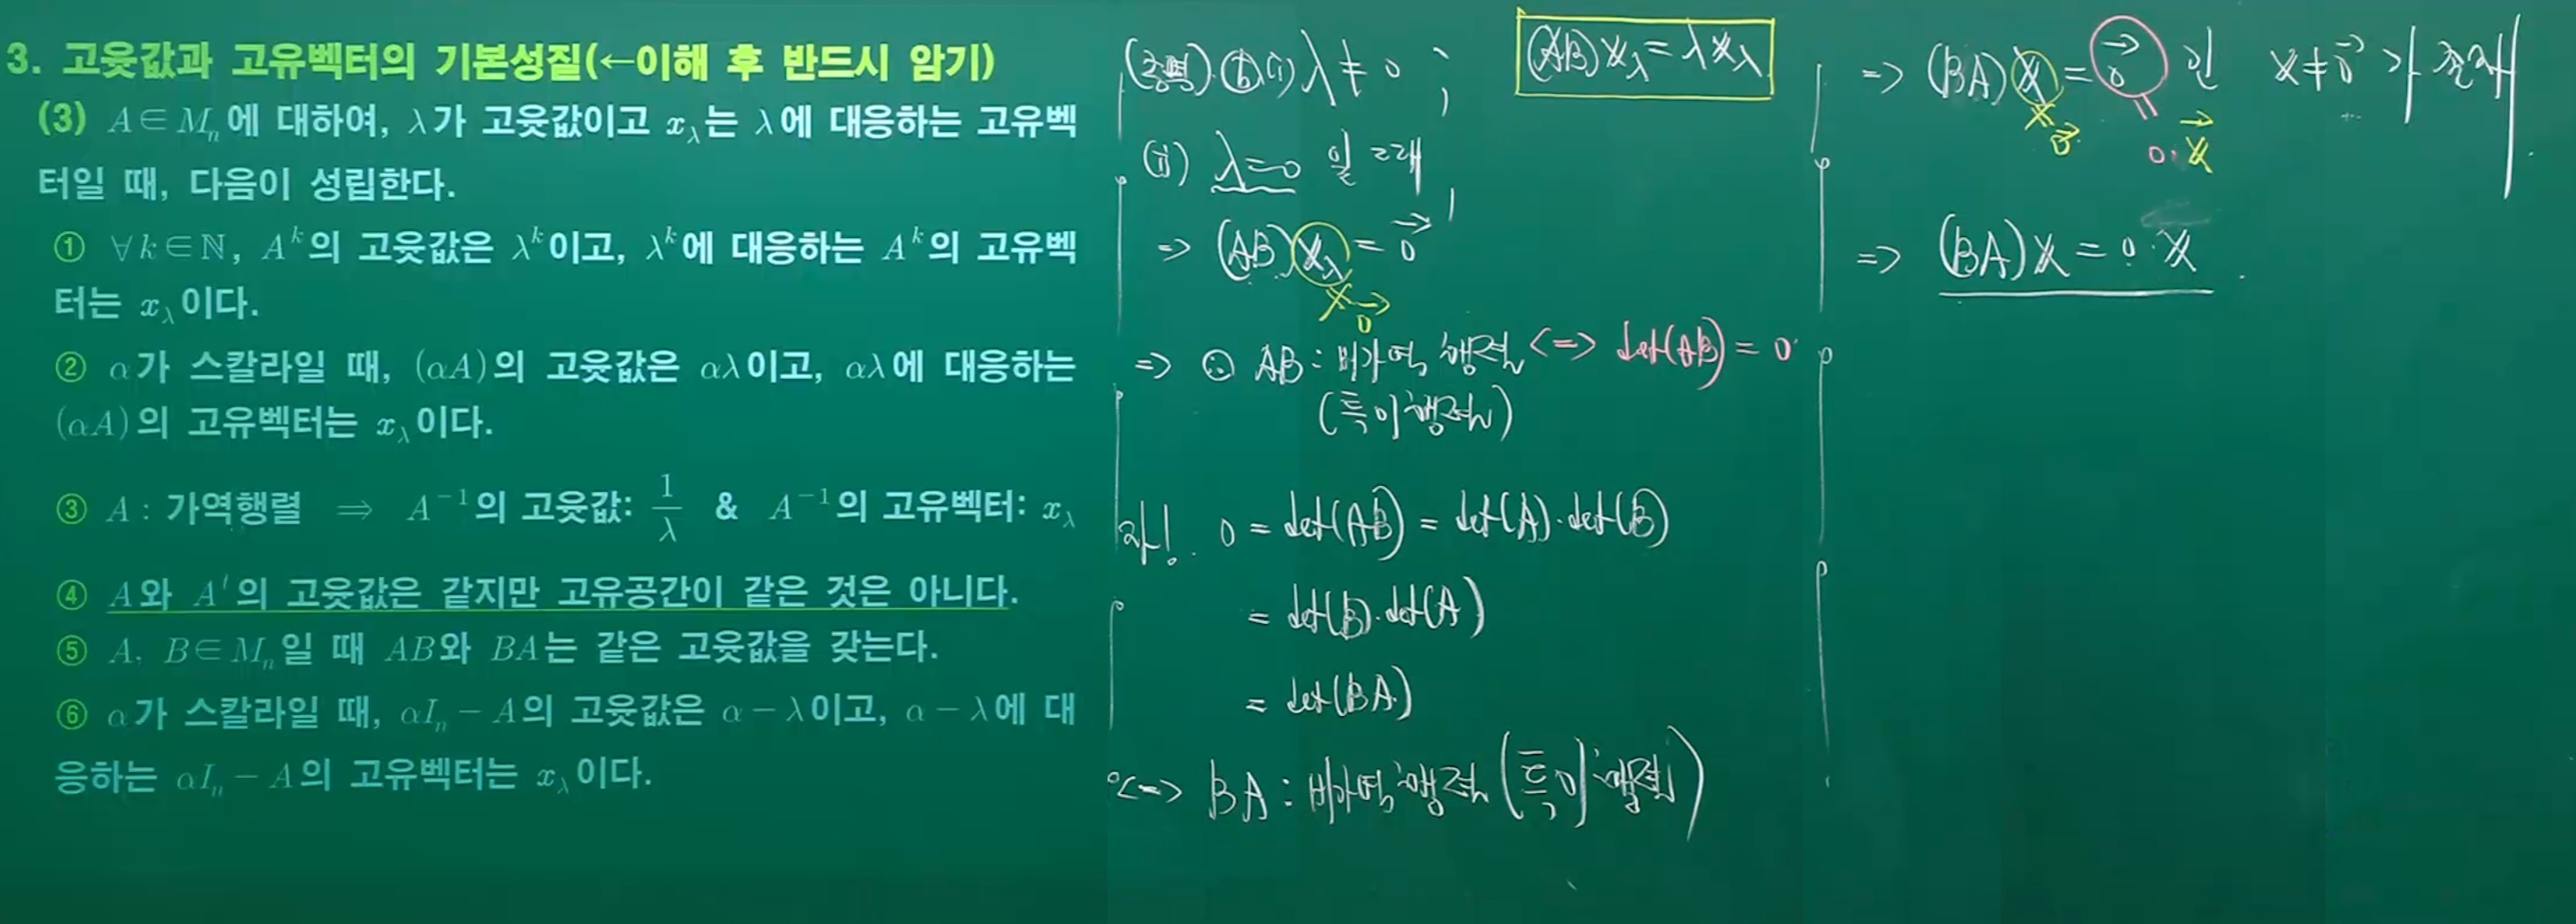 3. 고윳값과 고유벡터의 기본성질(←이해 후 반드시 암기)
(3) A∈Mₙ에 대하여, λ가 고윳값이고 x_λ는 λ에 대응하는 고유벡
터일 때, 다음이 성립한다.
① ∀k∈ℕ, Aᵏ의 고윳값은 λᵏ이고, λᵏ에 대응하는 Aᵏ의 고유벡
터는 x_λ이다.
② α가 스칼라일 때, (αA)의 고윳값은 αλ이고, αλ에 대응하는
(αA)의 고유벡터는 x_λ이다.
③ A : 가역행렬 ⇒ A⁻¹의 고윳값: 1/λ & A⁻¹의 고유벡터: x_λ
④ A와 Aᵗ의 고윳값은 같지만 고유공간이 같은 것은 아니다.
⑤ A, B∈Mₙ일 때 AB와 BA는 같은 고윳값을 갖는다.
⑥ α가 스칼라일 때, αIₙ−A의 고윳값은 α−λ이고, α−λ에 대
응하는 αIₙ−A의 고유벡터는 x_λ이다.
(증명) (i) λ ≠ 0 ;
(AB)x_λ = λx_λ
(ii) λ=0 일 때
=> (AB)x_λ = 0⃗
≠ 0⃗
=> ∴ AB : 비가역 행렬 <=> det(AB) = 0
(특이행렬)
0 = det(AB) = det(A)·det(B)
= det(B)·det(A)
= det(BA)
<=> BA : 비가역행렬 (특이행렬)
=> (BA)x = 0⃗ 인 x≠0⃗ 가 존재
≠ 0⃗
0·x⃗
=> (BA)x = 0·x